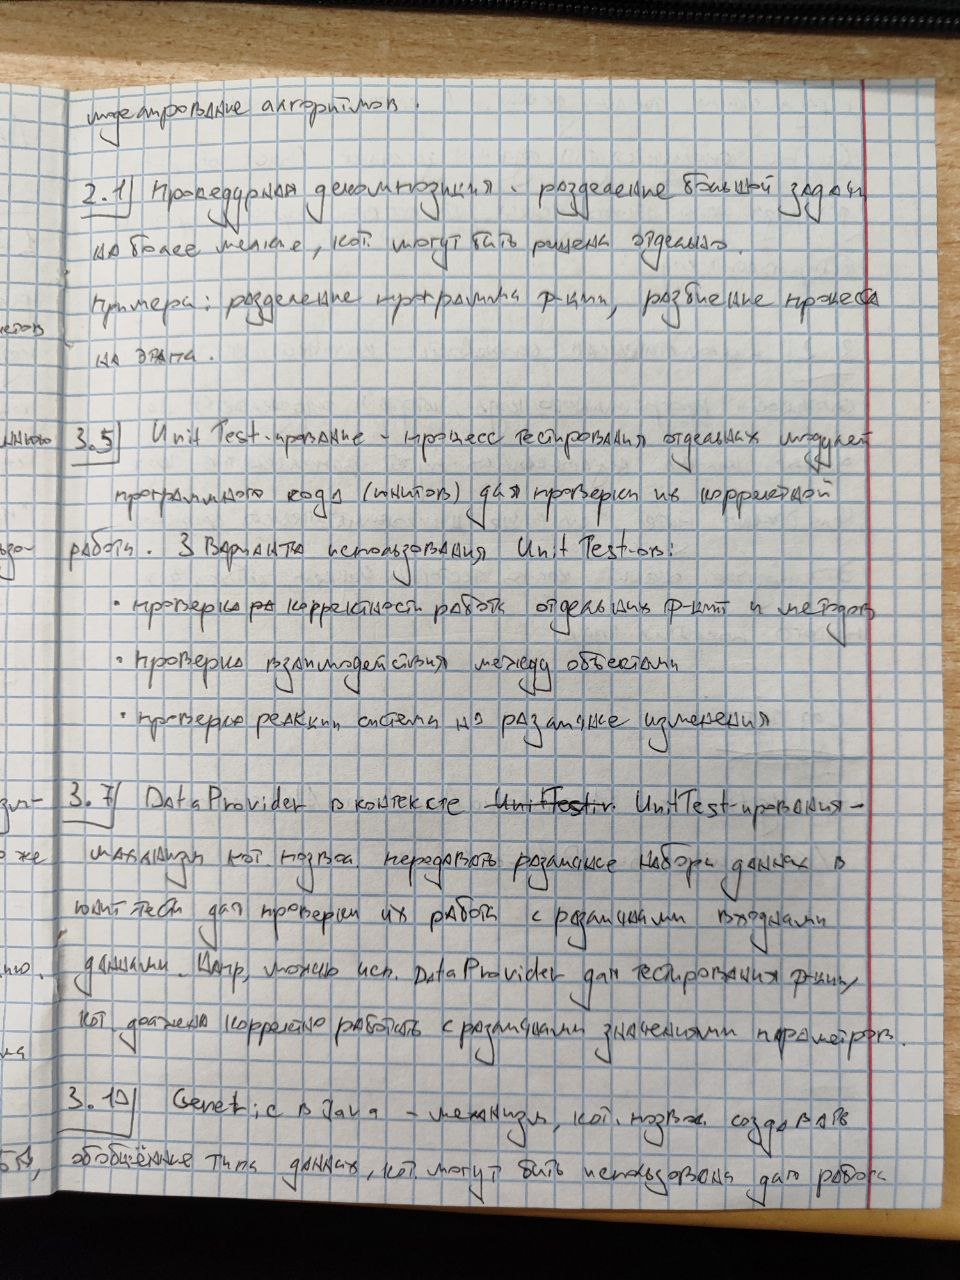 моделирование алгоритмов.
2.1) Процедурная декомпозиция - разделение большой задачи
на более мелкие, кот. могут быть решены отдельно.
Примеры: разделение программы ф-ции, разбиение процесса
на этапы.
3.5) Unit Test-ирование - процесс тестирования отдельных модулей
программного кода (юнитов) для проверки их корректной
работы. 3 варианта использования Unit Test-ов:
• проверка корректности работы отдельных ф-ций и методов
• проверка взаимодействия между объектами
• проверка реакции системы на различные изменения
3.7) DataProvider в контексте UnitTest-ирования -
механизм кот. позвол. передавать различные наборы данных в
юнит тесты для проверки их работы с различными входными
данными. Напр, можно исп. DataProvider для тестирования ф-ции,
кот должна корректно работать с различными значениями параметров.
3.10) Generic в Java - механизм, кот. позвол. создавать
обобщённые типы данных, кот. могут быть использованы для работы
нную
ьзо-
же